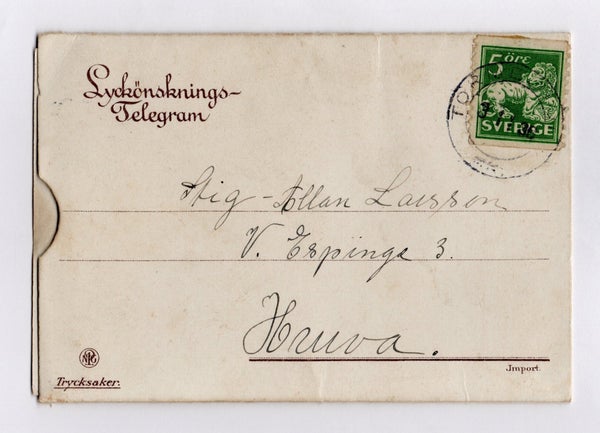 Lyckönsknings-
Telegram
5 ÖRE
SVERIGE
Stig-Allan Larsson
V. Espinge 3.
Hruva.
Trycksaker.
Import.